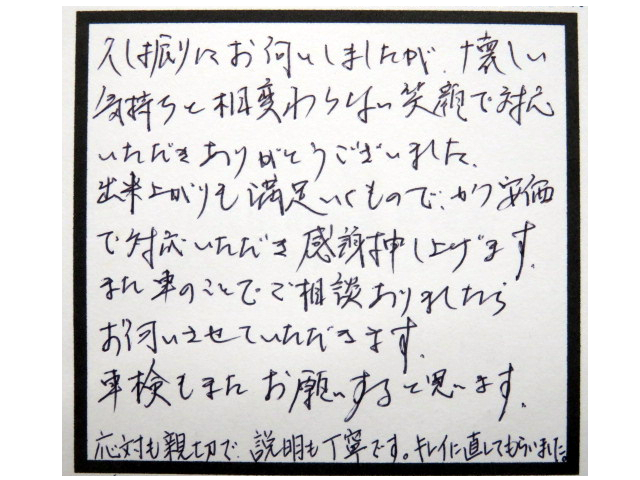 久し振りにお伺いしましたが、懐しい
気持ちと相変わらない笑顔で対応
いただきありがとうございました。
出来上がりも満足いくもので、かつ安価
で対応いただき感謝申し上げます。
また車のことでご相談ありましたら
お伺いさせていただきます。
車検もまたお願いすると思います。
応対も親切で、説明も丁寧です。キレイに直してもらいました。